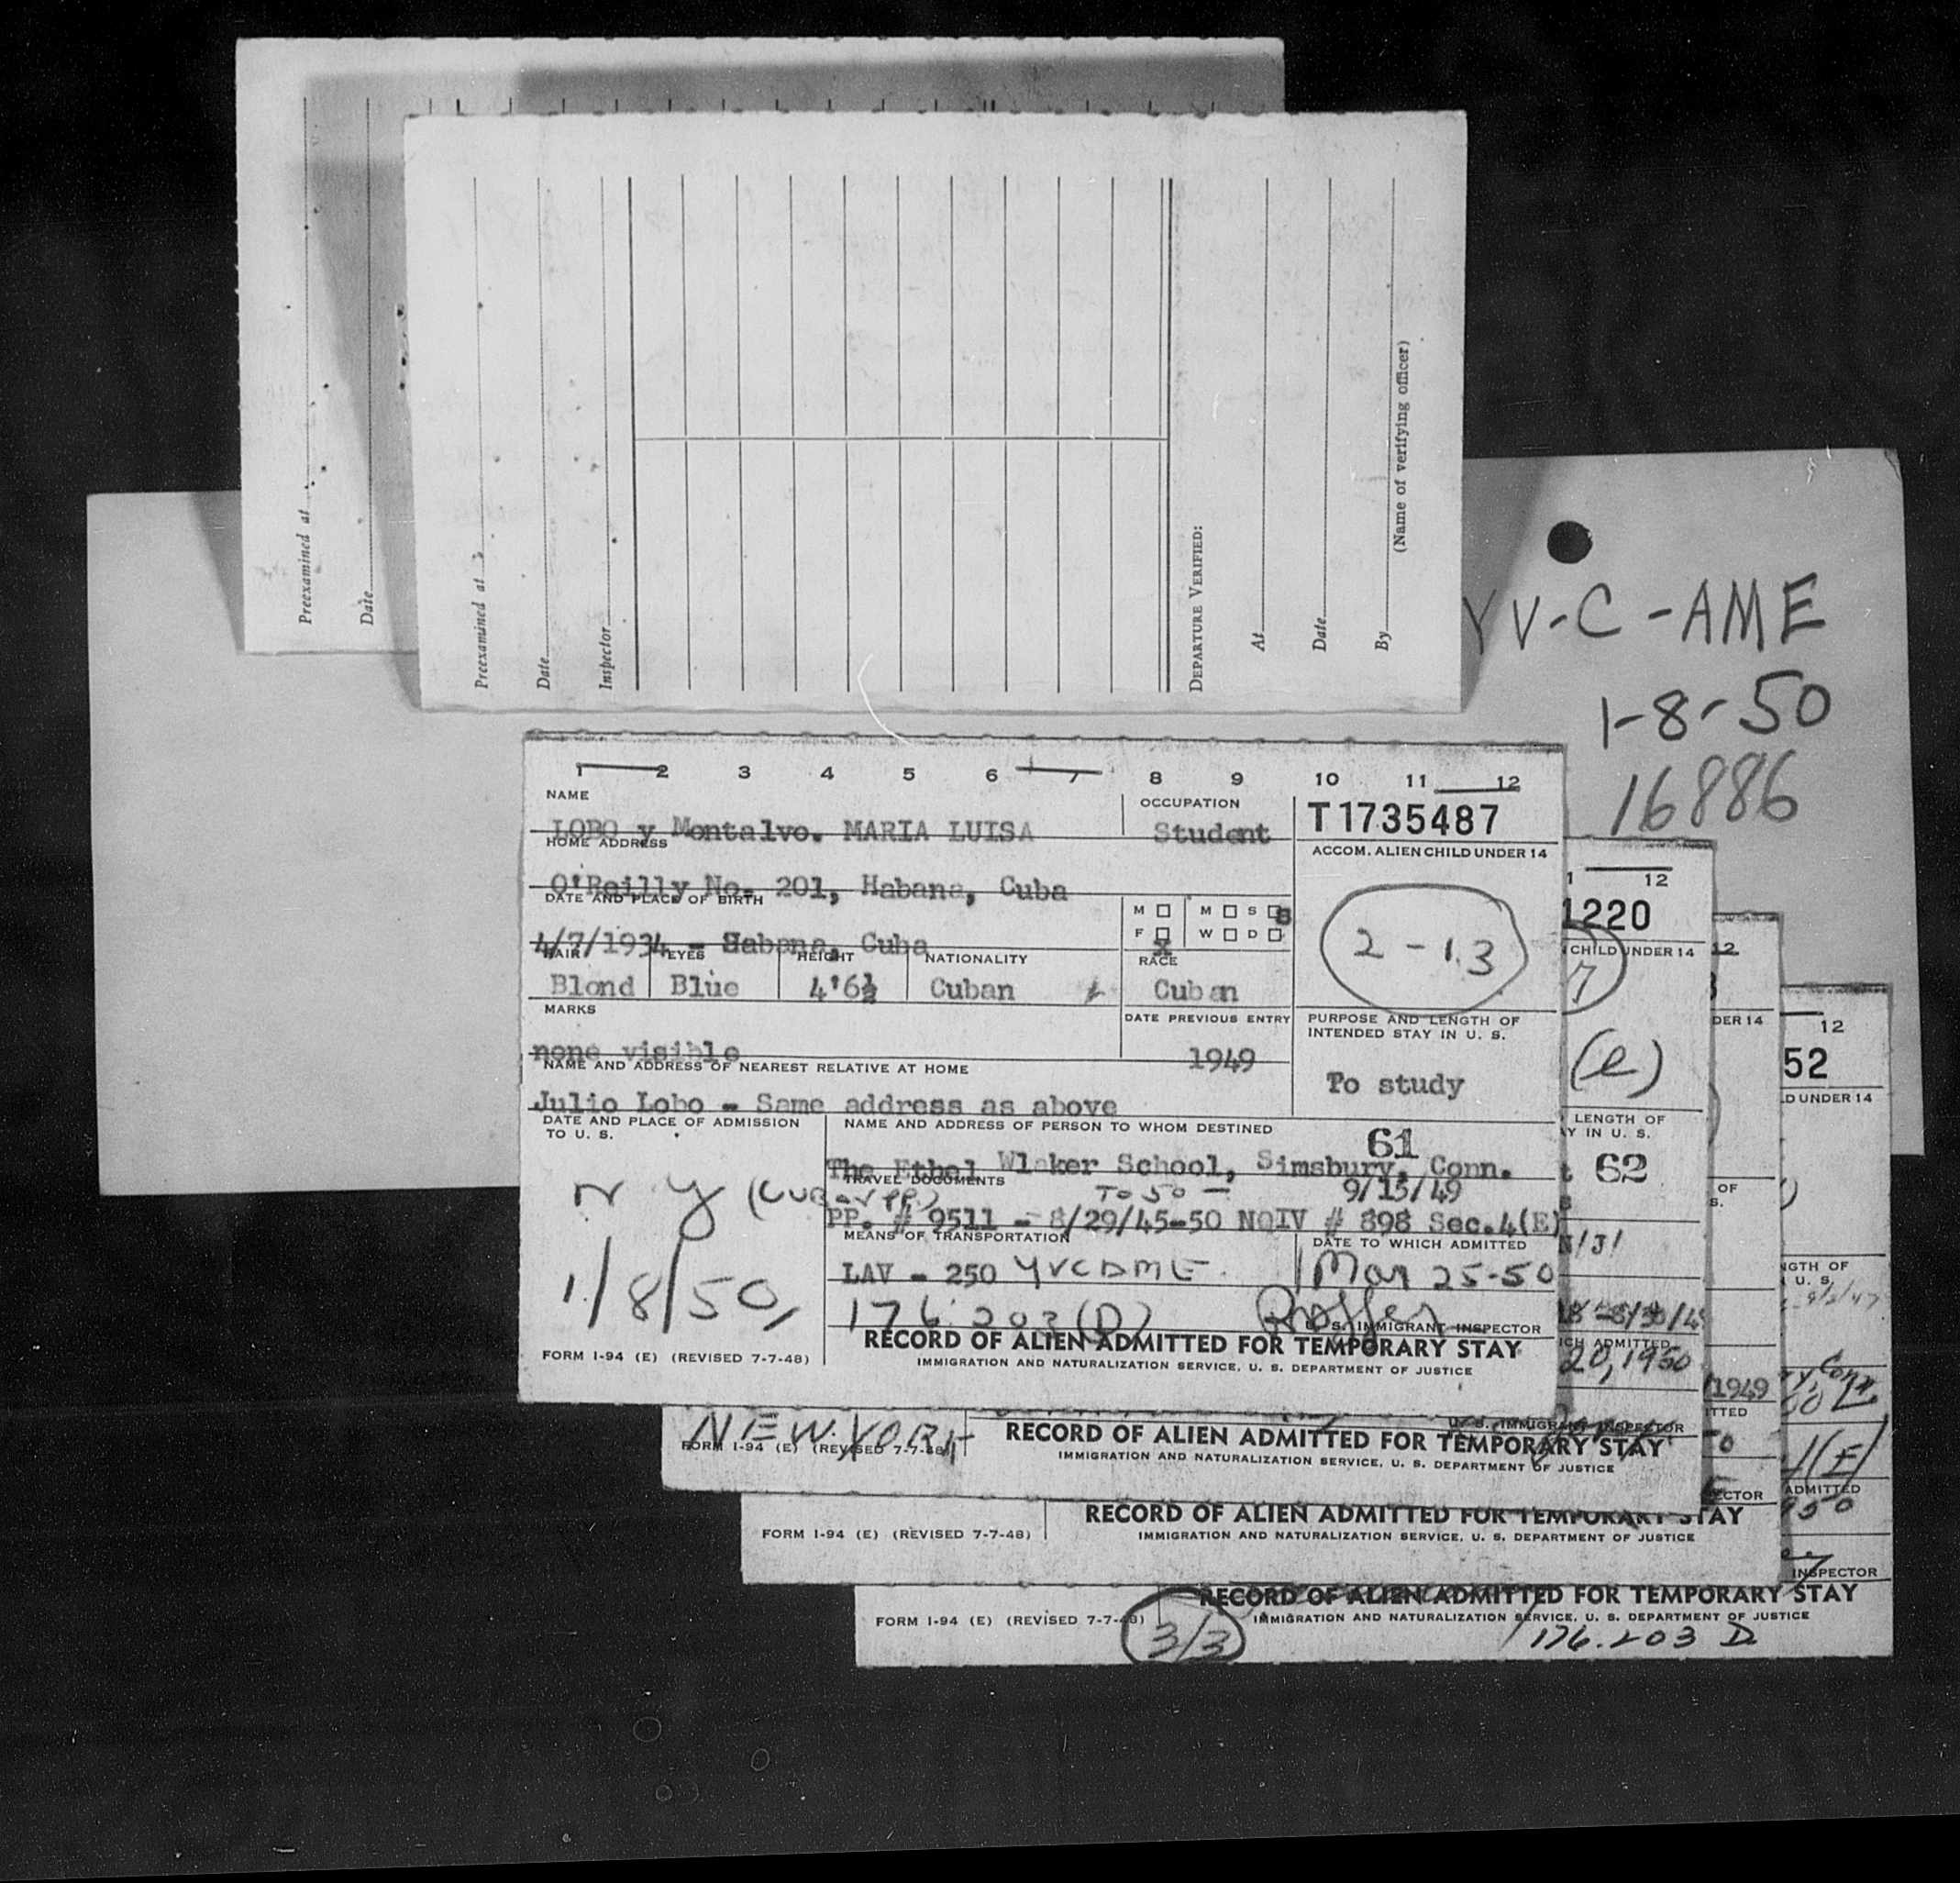 Preexamined at
Date
Preexamined at
Date
Inspector
DEPARTURE VERIFIED:
At
Date
By
(Name of verifying officer)
YV-C-AME
1-8-50
16886
1 2 3 4 5 6 7 8 9 10 11 12
NAME
OCCUPATION
T1735487
LOBO y Montalvo. MARIA LUISA
Student
HOME ADDRESS
ACCOM. ALIEN CHILD UNDER 14
O'Reilly No. 201, Habana, Cuba
DATE AND PLACE OF BIRTH
M M S S
F X W D
2-13
4/7/1934 - Habana, Cuba
HAIR EYES HEIGHT NATIONALITY RACE
Blond Blue 4'6½ Cuban Cuban
MARKS
DATE PREVIOUS ENTRY
PURPOSE AND LENGTH OF
INTENDED STAY IN U. S.
none visible
1949
To study
NAME AND ADDRESS OF NEAREST RELATIVE AT HOME
Julio Lobo - Same address as above
DATE AND PLACE OF ADMISSION
TO U. S.
NAME AND ADDRESS OF PERSON TO WHOM DESTINED
61
The Ethel Wlaker School, Simsbury, Conn.
TRAVEL DOCUMENTS
N Y (Cuban PP.)
TO 50 -
9/15/49
PP. # 9511 - 8/29/45-50 NQIV # 898 Sec.4(E)
MEANS OF TRANSPORTATION
DATE TO WHICH ADMITTED
LAV - 250 YVCDME
Mar 25-50
1/8/50
176.203(D)
U. S. IMMIGRANT INSPECTOR
RECORD OF ALIEN ADMITTED FOR TEMPORARY STAY
FORM I-94 (E) (REVISED 7-7-48)
IMMIGRATION AND NATURALIZATION SERVICE, U. S. DEPARTMENT OF JUSTICE
1 12
1220
CHILD UNDER 14
7
(e)
LENGTH OF
Y IN U. S.
t 62
N!J!
ICH ADMITTED
20, 1950
NEW YORK
U. S. IMMIGRANT INSPECTOR
FORM I-94 (E) (REVISED 7-7-48)
RECORD OF ALIEN ADMITTED FOR TEMPORARY STAY
IMMIGRATION AND NATURALIZATION SERVICE, U. S. DEPARTMENT OF JUSTICE
12
DER 14
OF
S.
1949
TTED
ECTOR
RECORD OF ALIEN ADMITTED FOR TEMPORARY STAY
FORM I-94 (E) (REVISED 7-7-48)
IMMIGRATION AND NATURALIZATION SERVICE, U. S. DEPARTMENT OF JUSTICE
12
52
LD UNDER 14
NGTH OF
U. S.
y, Conn.
(E)
ADMITTED
950
INSPECTOR
RECORD OF ALIEN ADMITTED FOR TEMPORARY STAY
FORM I-94 (E) (REVISED 7-7-48)
IMMIGRATION AND NATURALIZATION SERVICE, U. S. DEPARTMENT OF JUSTICE
3/3
176.203 D